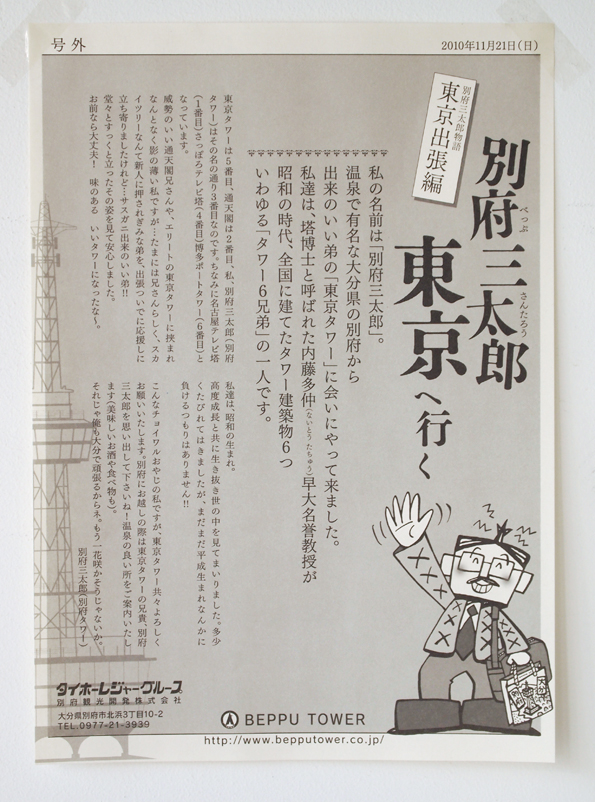 号外
2010年11月21日(日)
別府三太郎物語
東京出張編
別府三太郎
べっぷ さんたろう
東京へ行く
私の名前は「別府三太郎」。
温泉で有名な大分県の別府から
出来のいい弟の「東京タワー」に会いにやって来ました。
私達は、塔博士と呼ばれた内藤多仲(ないとうたちゅう)早大名誉教授が
昭和の時代、全国に建てたタワー建築物6つ
いわゆる「タワー6兄弟」の一人です。
東京タワーは5番目、通天閣は2番目、私、別府三太郎(別府
タワー)はその名の通り3番目なのです。ちなみに名古屋テレビ塔
(1番目)さっぽろテレビ塔(4番目)博多ポートタワー(6番目)と
なっています。
威勢のいい通天閣兄さんや、エリートの東京タワーに挟まれ
なんとなく影の薄い私ですが…たまには兄さんらしく、スカ
イツリーなんて新人に押されぎみな弟を、出張ついでに応援しに
立ち寄りましたけれど…サスガニ出来のいい弟!!
堂々とすっくと立ったその姿を見て安心しました。
お前なら大丈夫! 味のある いいタワーになったな〜。
私達は、昭和の生まれ。
高度成長と共に生き抜き世の中を見てまいりました。多少
くたびれてはきましたが、まだまだ平成生まれなんかに
負けるつもりはありません!!
こんなチョイワルおやじの私ですが、東京タワー共々よろしく
お願いいたします。別府にお越しの際は東京タワーの兄貴、別府
三太郎を思い出して下さいね!温泉の良い所をご案内いたし
ます(美味しいお酒や食べ物も)。
それじゃ俺も大分で頑張るからネ。もう一花咲かそうじゃないか。
別府三太郎(別府タワー)
タイホーレジャーグループ
別府観光開発株式会社
大分県別府市北浜3丁目10-2
TEL.0977-21-3939
BEPPU TOWER
http://www.bepputower.co.jp/